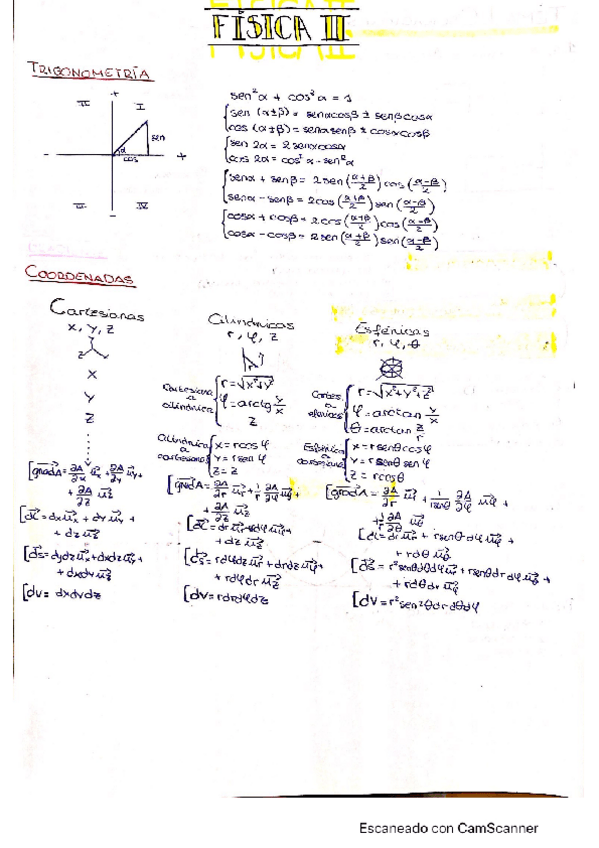 FÍSICA III
TRIGONOMETRÍA
II + I
sen
α
cos
- +
III - IV
sen²α + cos²α = 1
sen (α±β) = senαcosβ ± senβcosα
cos (α±β) = senαsenβ ± cosαcosβ
sen 2α = 2senαcosα
cos 2α = cos²α - sen²α
senα + senβ = 2sen(α+β/2)cos(α-β/2)
senα - senβ = 2cos(α+β/2)sen(α-β/2)
cosα + cosβ = 2cos(α+β/2)cos(α-β/2)
cosα - cosβ = 2sen(α+β/2)sen(α-β/2)
COORDENADAS
Cartesianas
x, y, z
z
x
y
z
[gradA = ∂A/∂x ux + ∂A/∂y uy +
+ ∂A/∂z uz
[dl = dxux + dy uy +
+ dz uz
[ds = dydz ux + dxdz uy +
+ dxdy uz
[dv = dxdydz
Cilíndricas
r, φ, z
Cartesiana a cilíndrica
r = √x²+y²
φ = arctg y/x
z
Cilíndrica a cartesiana
x = rcosφ
y = rsenφ
z = z
[gradA = ∂A/∂r ur + 1/r ∂A/∂φ uφ +
+ ∂A/∂z uz
[dl = dr ur + rdφ uφ +
+ dz uz
[ds = rdφdz ur + drdz uφ +
+ rdφdr uz
[dv = rdrdφdz
Esféricas
r, φ, θ
Cartes. a esféricas
r = √x²+y²+z²
φ = arctan y/x
θ = arctan z/r
Esférica a cartesiana
x = rsenθcosφ
y = rsenθsenφ
z = rcosθ
[gradA = ∂A/∂r ur + 1/rsenθ ∂A/∂φ uφ +
+ 1/r ∂A/∂θ uθ
[dl = dr ur + rsenθdφ uφ +
+ rdθ uθ
[ds = r²senθdθdφ ur + rsenθdrdφ uθ +
+ rdθdr uφ
[dv = r²sen²θdrdθdφ
Escaneado con CamScanner